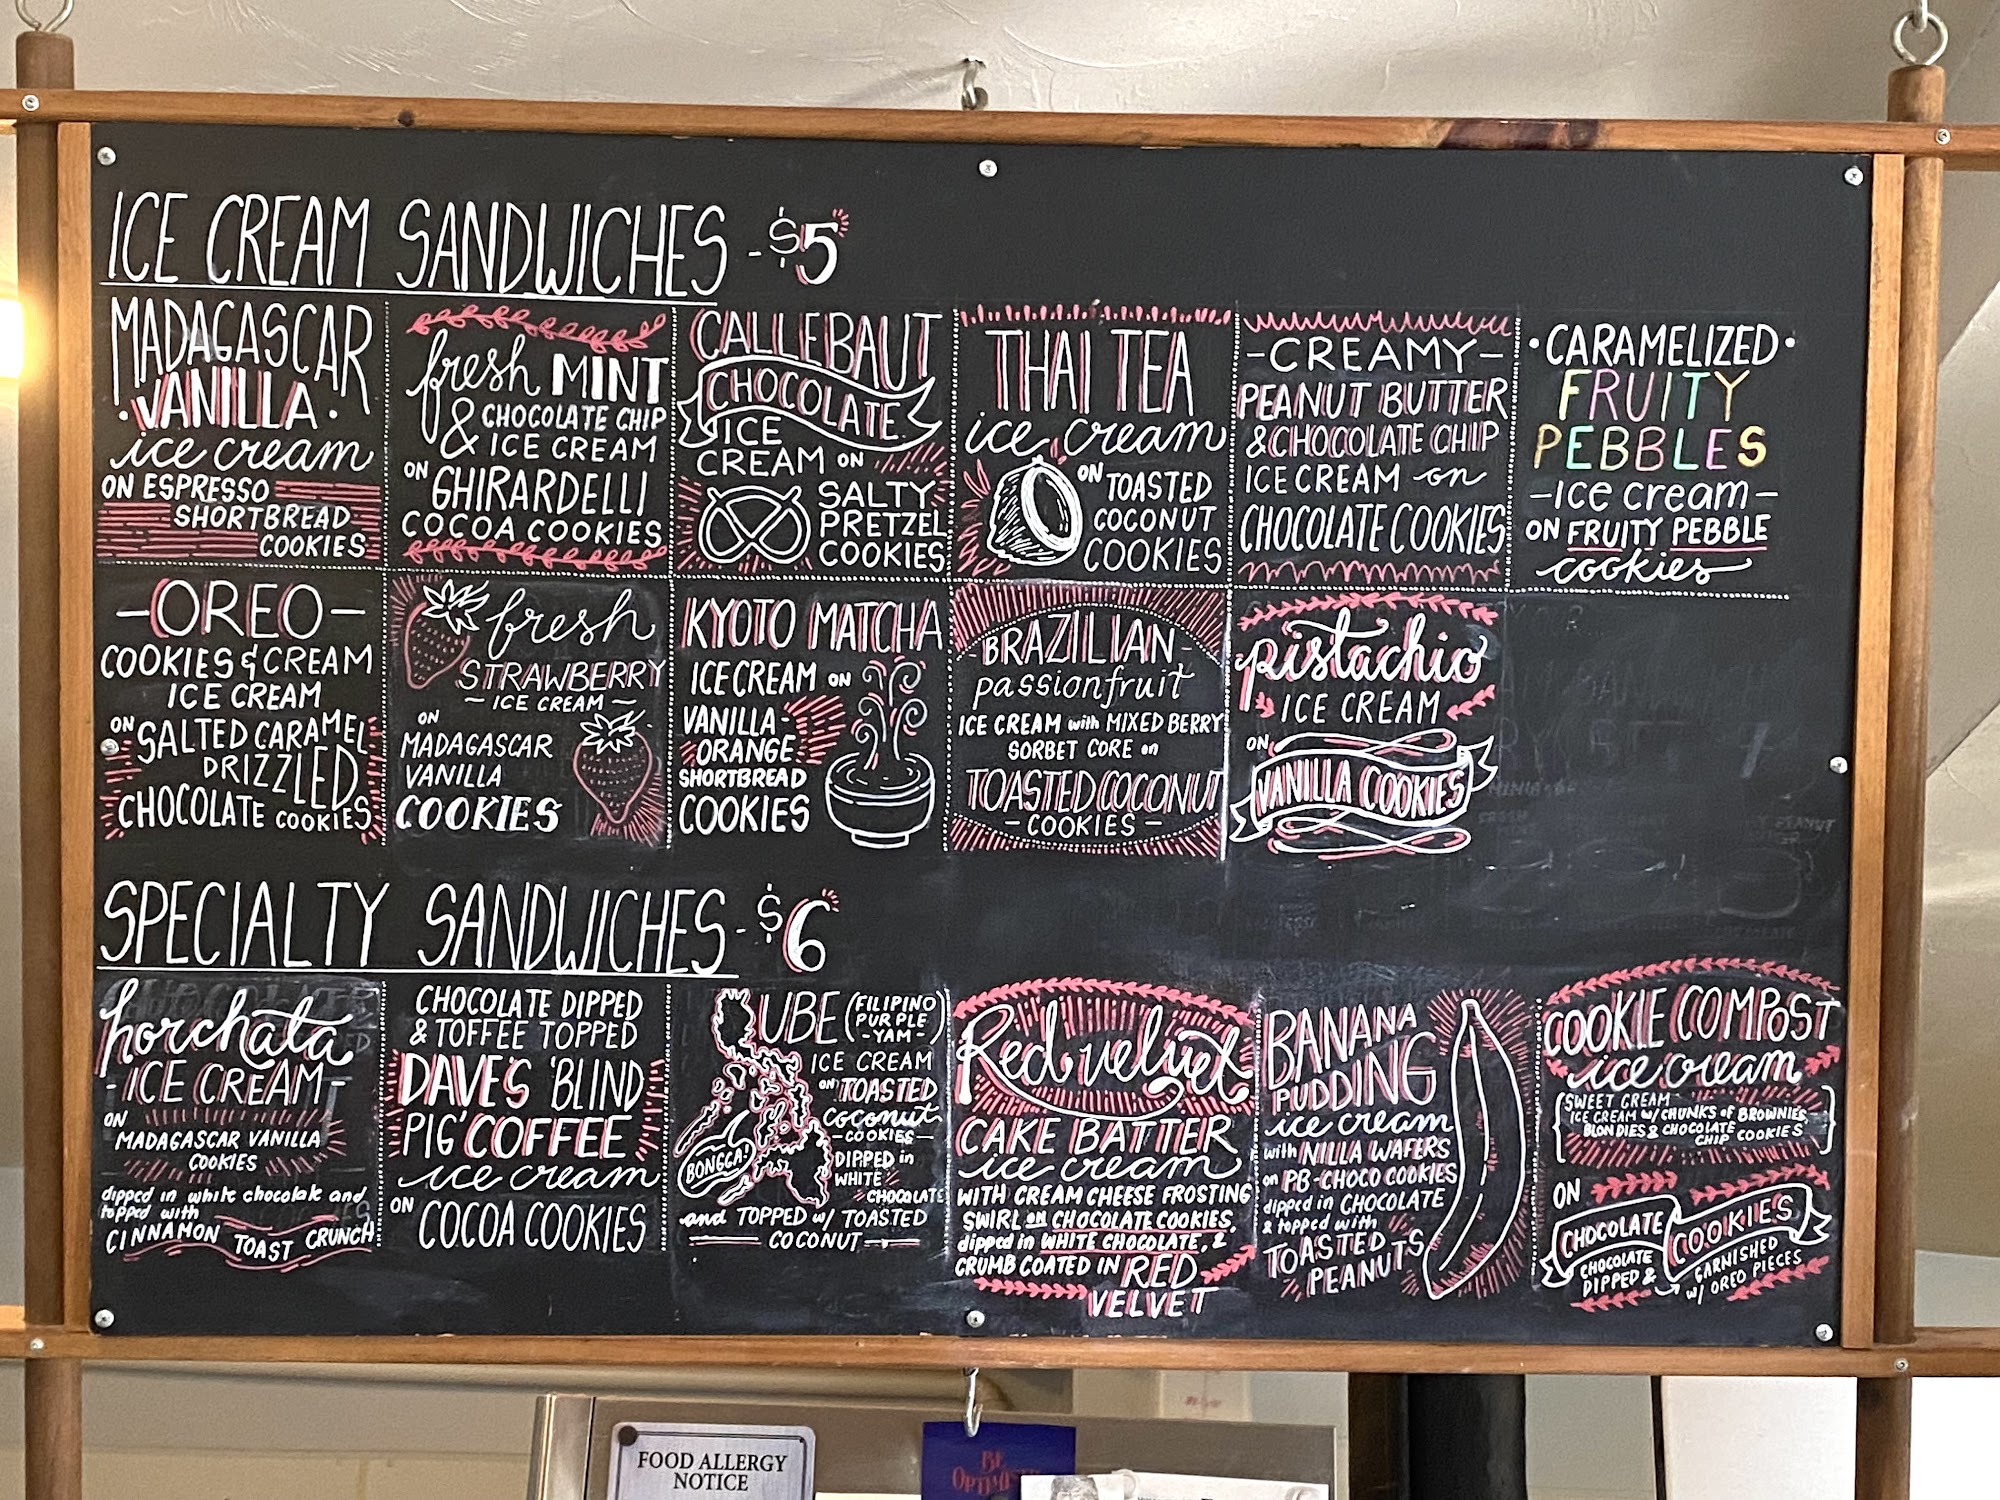 ICE CREAM SANDWICHES - $5
MADAGASCAR
VANILLA
ice cream
ON ESPRESSO
SHORTBREAD
COOKIES
fresh MINT
& CHOCOLATE CHIP
ICE CREAM
ON GHIRARDELLI
COCOA COOKIES
CALLEBAUT
CHOCOLATE
ICE
CREAM ON
SALTY
PRETZEL
COOKIES
THAI TEA
ice cream
ON TOASTED
COCONUT
COOKIES
-CREAMY-
PEANUT BUTTER
& CHOCOLATE CHIP
ICE CREAM on
CHOCOLATE COOKIES
·CARAMELIZED·
FRUITY
PEBBLES
-ice cream-
ON FRUITY PEBBLE
cookies
-OREO-
COOKIES & CREAM
ICE CREAM
ON SALTED CARAMEL
DRIZZLED
CHOCOLATE COOKIES
fresh
STRAWBERRY
~ICE CREAM~
ON
MADAGASCAR
VANILLA
COOKIES
KYOTO MATCHA
ICE CREAM ON
VANILLA-
ORANGE
SHORTBREAD
COOKIES
-BRAZILIAN-
passionfruit
ICE CREAM with MIXED BERRY
SORBET CORE on
TOASTED COCONUT
-COOKIES-
pistachio
ICE CREAM
ON
VANILLA COOKIES
SPECIALTY SANDWICHES - $6
horchata
-ICE CREAM-
ON
MADAGASCAR VANILLA
COOKIES
dipped in white chocolate and
topped with
CINNAMON TOAST CRUNCH
CHOCOLATE DIPPED
& TOFFEE TOPPED
DAVE'S 'BLIND
PIG' COFFEE
ice cream
ON COCOA COOKIES
UBE (FILIPINO
PURPLE
-YAM-)
ICE CREAM
ON TOASTED
coconut
-COOKIES-
BONGGA!
DIPPED in
WHITE
CHOCOLATE
and TOPPED w/ TOASTED
COCONUT
Red velvet
CAKE BATTER
ice cream
WITH CREAM CHEESE FROSTING
SWIRL on CHOCOLATE COOKIES,
dipped in WHITE CHOCOLATE, &
CRUMB COATED IN RED
VELVET
BANANA
PUDDING
ice cream
with NILLA WAFERS
on PB-CHOCO COOKIES
dipped in CHOCOLATE
& topped with
TOASTED
PEANUTS
COOKIE COMPOST
ice cream
(SWEET CREAM
ICE CREAM w/ CHUNKS of BROWNIES
BLONDIES & CHOCOLATE
CHIP COOKIES)
ON
CHOCOLATE COOKIES
CHOCOLATE
DIPPED &
GARNISHED
w/ OREO PIECES
FOOD ALLERGY
NOTICE
BE